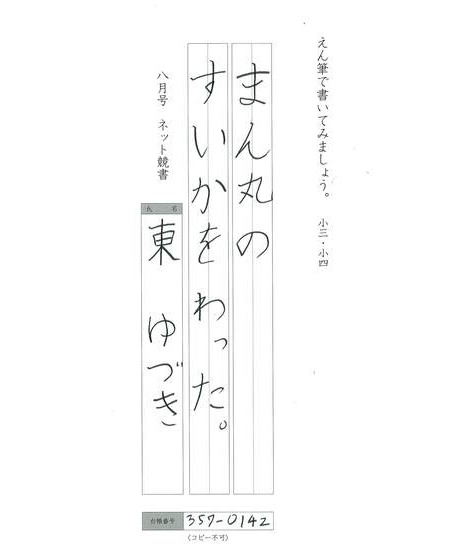 えん筆で書いてみましょう。 小三・小四
まん丸の
すいかをわった。
八月号 ネット競書
氏名
東 ゆづき
台帳番号 357-0142
(コピー不可)